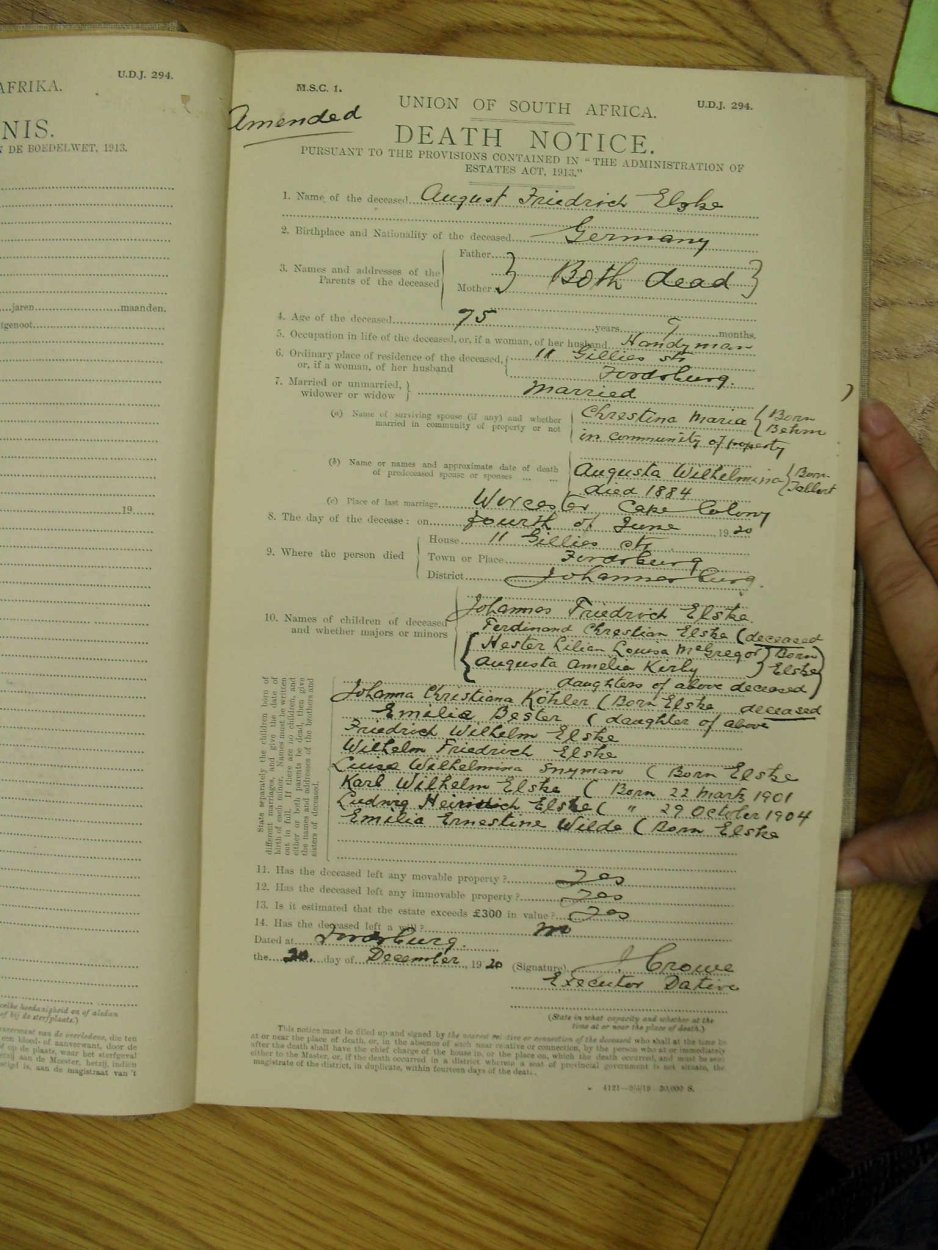 AFRIKA.
U.D.J. 294.
NIS.
N DE BOEDELWET, 1913.
jaren maanden.
tgenoot
19
M.S.C. 1.
U.D.J. 294.
UNION OF SOUTH AFRICA.
Amended
DEATH NOTICE.
PURSUANT TO THE PROVISIONS CONTAINED IN "THE ADMINISTRATION OF
ESTATES ACT, 1913."
1. Name of the deceased August Friedrich Elske
2. Birthplace and Nationality of the deceased Germany
3. Names and addresses of the Parents of the deceased
Father
Mother
Both dead
4. Age of the deceased 75 years 9 months.
5. Occupation in life of the deceased, or, if a woman, of her husband Handyman
6. Ordinary place of residence of the deceased, 11 Gillies str
or, if a woman, of her husband Fordsburg.
7. Married or unmarried, widower or widow Married
(a) Name of surviving spouse (if any) and whether Chrestina Maria (Born Behm
married in community of property or not in community of property
(b) Name or names and approximate date of death Augusta Wilhelmina (Born
of predeceased spouse or spouses died 1884
(c) Place of last marriage Worcester Cape Colony
8. The day of the decease: on fourth of June 1920
9. Where the person died
House 11 Gillies str
Town or Place Fordsburg
District Johannesburg.
10. Names of children of deceased and whether majors or minors
Johannes Friedrich Elske
Ferdinand Chrestian Elske (deceased
Hester Lilian Louisa McGregor } Born
Augusta Amelia Kirby } Elske
daughters of above deceased)
State separately the children born of
different marriages, and give the date of
birth of each minor. Names must be written
out in full. If there are no children, and
either or both parents be dead, then give
the names and addresses of the brothers and
sisters of deceased.
Johanna Christiana Köhler (Born Elske deceased
Emilia Bester (daughter of above
Friedrich Wilhelm Elske
Wilhelm Friedrich Elske
Luise Wilhelmina Snyman (Born Elske
Karl Wilhelm Elske (Born 22 Marts 1901
Ludwig Heinrich Elske ( " 29 October 1904
Emilia Ernestine Wilde (Born Elske
11. Has the deceased left any movable property? Yes
12. Has the deceased left any immovable property? Yes
13. Is it estimated that the estate exceeds £300 in value? Yes
14. Has the deceased left a will? no
Dated at Fordsburg.
the 20. day of December, 1920
(Signature) J Crowe
Executor Dative
(State in what capacity and whether at the
time at or near the place of death.)
This notice must be filled up and signed by the nearest relative or connection of the deceased who shall at the time be
at or near the place of death, or, in the absence of such near relative or connection, by the person who at or immediately
after the death shall have the chief charge of the house in, or the place on, which the death occurred, and must be sent
either to the Master, or, if the death occurred in a district wherein a seat of provincial government is not situate, the
magistrate of the district, in duplicate, within fourteen days of the death.